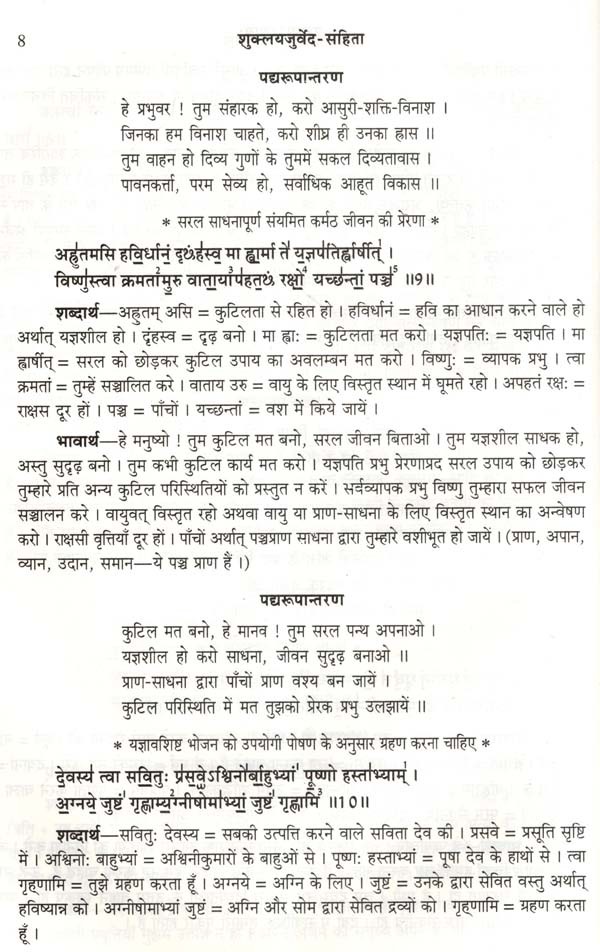 8
शुक्लयजुर्वेद-संहिता
पद्यरूपान्तरण
हे प्रभुवर ! तुम संहारक हो, करो आसुरी-शक्ति-विनाश ।
जिनका हम विनाश चाहते, करो शीघ्र ही उनका ह्रास ॥
तुम वाहन हो दिव्य गुणों के तुममें सकल दिव्यतावास ।
पावनकर्त्ता, परम सेव्य हो, सर्वाधिक आहूत विकास ॥
* सरल साधनापूर्ण संयमित कर्मठ जीवन की प्रेरणा *
अह्रु॑तमसि हवि॒र्धानं॒ दृꣳह॑स्व॒ मा ह्वा॒र्मा ते॑ य॒ज्ञप॑तिर्ह्वार्षीत् ।
विष्णु॑स्त्वा क्रमतामु॒रु वाता॒याप॑हत॒ꣳ रक्षो॒ यच्छ॑न्तां॒ पञ्च॑ ॥9॥
शब्दार्थ—अह्रुतम् असि = कुटिलता से रहित हो । हविर्धानं = हवि का आधान करने वाले हो
अर्थात् यज्ञशील हो । दृंहस्व = दृढ़ बनो । मा ह्वाः = कुटिलता मत करो । यज्ञपतिः = यज्ञपति । मा
ह्वार्षीत् = सरल को छोड़कर कुटिल उपाय का अवलम्बन मत करो । विष्णुः = व्यापक प्रभु । त्वा
क्रमतां = तुम्हें सञ्चालित करे । वाताय उरु = वायु के लिए विस्तृत स्थान में घूमते रहो । अपहतं रक्षः =
राक्षस दूर हों । पञ्च = पाँचों । यच्छन्तां = वश में किये जायें ।
भावार्थ—हे मनुष्यो ! तुम कुटिल मत बनो, सरल जीवन बिताओ । तुम यज्ञशील साधक हो,
अस्तु सुदृढ़ बनो । तुम कभी कुटिल कार्य मत करो । यज्ञपति प्रभु प्रेरणाप्रद सरल उपाय को छोड़कर
तुम्हारे प्रति अन्य कुटिल परिस्थितियों को प्रस्तुत न करें । सर्वव्यापक प्रभु विष्णु तुम्हारा सफल जीवन
सञ्चालन करे । वायुवत् विस्तृत रहो अथवा वायु या प्राण-साधना के लिए विस्तृत स्थान का अन्वेषण
करो । राक्षसी वृत्तियाँ दूर हों । पाँचों अर्थात् पञ्चप्राण साधना द्वारा तुम्हारे वशीभूत हो जायें । (प्राण, अपान,
व्यान, उदान, समान—ये पञ्च प्राण हैं ।)
पद्यरूपान्तरण
कुटिल मत बनो, हे मानव ! तुम सरल पन्थ अपनाओ ।
यज्ञशील हो करो साधना, जीवन सुदृढ़ बनाओ ॥
प्राण-साधना द्वारा पाँचों प्राण वश्य बन जायें ।
कुटिल परिस्थिति में मत तुझको प्रेरक प्रभु उलझायें ॥
* यज्ञावशिष्ट भोजन को उपयोगी पोषण के अनुसार ग्रहण करना चाहिए *
दे॒वस्य॑ त्वा सवि॒तुः प्र॑स॒वे॒ऽश्विनो॑र्बा॒हुभ्यां॑ पू॒ष्णो हस्ता॑भ्याम् ।
अ॒ग्नये॒ जुष्टं॑ गृह्णाम्य॒ग्नीषोमा॑भ्यां॒ जुष्टं॑ गृह्णामि ॥10॥
शब्दार्थ—सवितुः देवस्य = सबकी उत्पत्ति करने वाले सविता देव की । प्रसवे = प्रसूति सृष्टि
में । अश्विनोः बाहुभ्यां = अश्विनीकुमारों के बाहुओं से । पूष्णः हस्ताभ्यां = पूषा देव के हाथों से । त्वा
गृह्णामि = तुझे ग्रहण करता हूँ । अग्नये = अग्नि के लिए । जुष्टं = उनके द्वारा सेवित वस्तु अर्थात्
हविष्यान्न को । अग्नीषोमाभ्यां जुष्टं = अग्नि और सोम द्वारा सेवित द्रव्यों को । गृह्णामि = ग्रहण करता
हूँ ।